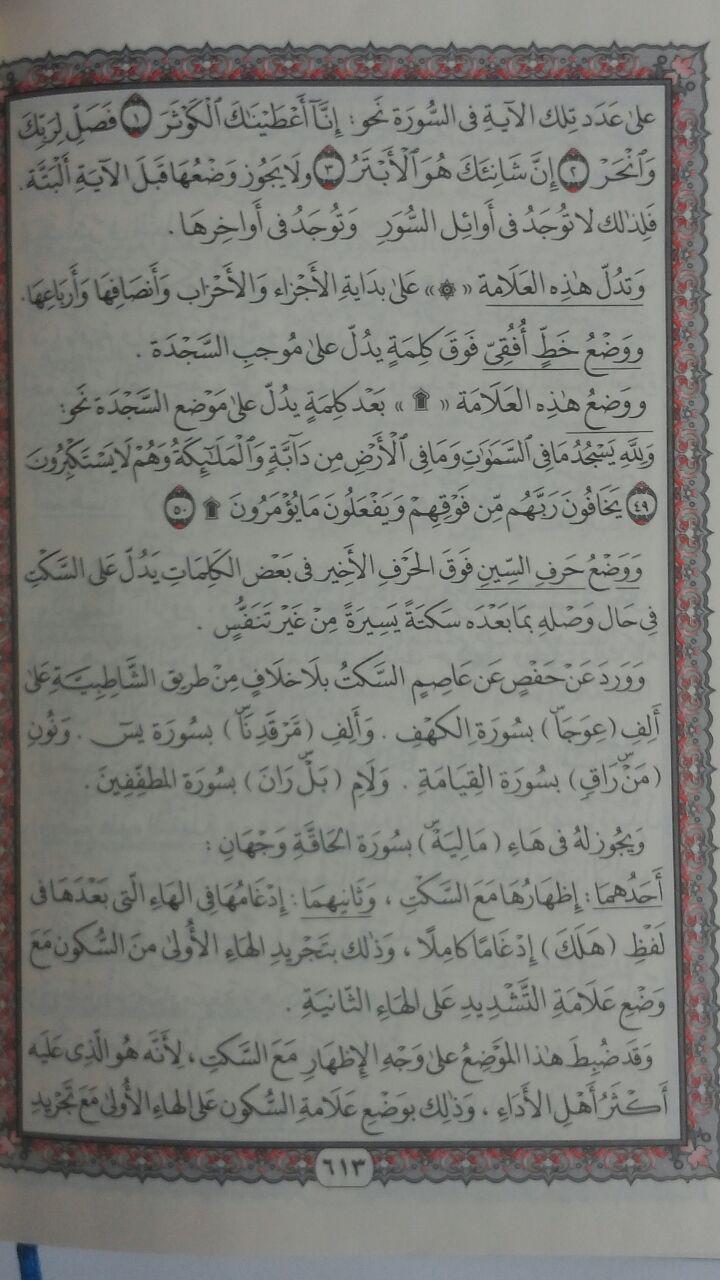 عَلىٰ عَدَد تِلكَ الآيَةِ فى السُّورَة نَحو: إِنَّآ أَعۡطَيۡنَٰكَ ٱلۡكَوۡثَرَ ١ فَصَلِّ لِرَبِّكَ
وَٱنۡحَرۡ ٢ إِنَّ شَانِئَكَ هُوَ ٱلۡأَبۡتَرُ ٣ ولَا يَجُوز وَضْعُهَا قَبلَ الآيَة أَلْبَتَّة.
فَلِذٰلك لا تُوجَدُ فى أَوائِل السُّوَرِ وَتُوجَدُ فى أَواخِرهَا.
وَتَدُلّ هٰذِه العَلَامَة « ۞ » عَلىٰ بدَاية الأَجْزاء وَالأَحْزاب وَأَنصَافِها وَأَربَاعِهَا.
ووَضْعُ خَطٍّ أُفُقِىّ فَوقَ كلِمَةٍ يدُلّ علىٰ مُوجبِ السَّجْدَة .
ووَضعُ هٰذِه العَلَامَة « ۩ » بَعْد كلِمَةٍ يدُلّ علىٰ مَوْضع السَّجْدَة نَحو:
وَلِلَّهِ يَسۡجُدُ مَا فِي ٱلسَّمَٰوَٰتِ وَمَا فِي ٱلۡأَرۡضِ مِن دَآبَّةٖ وَٱلۡمَلَٰٓئِكَةُ وَهُمۡ لَا يَسۡتَكۡبِرُونَ
٤٩ يَخَافُونَ رَبَّهُم مِّن فَوۡقِهِمۡ وَيَفۡعَلُونَ مَا يُؤۡمَرُونَ ۩ ٥٠
وَوَضْعُ حَرفِ السِّينِ فَوقَ الحَرْفِ الأَخِير فى بَعْض الكَلِمَاتِ يَدُلّ عَلى السَّكْتِ
فى حَال وَصْلِهِ بمَا بَعْدَه سَكتَةً يَسِيرَةً مِنْ غَيْر تَنَفُّسٍ .
وَوَردَ عَنْ حَفْصٍ عَن عَاصِمٍ السَّكتُ بِلَا خلَافٍ مِنْ طريق الشَّاطِبِيَّةِ عَلىٰ
أَلِفِ (عِوَجَاۜ) بسُورَةِ الكَهْفِ . وَأَلِفِ (مَّرۡقَدِنَاۜ) بسُورَة يسٓ . وَنُونِ
(مَنۡۜ رَاقٖ) بسُورَةِ القِيَامَةِ . وَلَامِ (بَلۡۜ رَانَ) بسُورَةِ المطَفِّفِينَ .
وَيَجُوز لهُ فى هَاءِ (مَالِيَهۡۜ) بسُورَةِ الحَاقَّةِ وَجْهَانِ :
أَحَدُهُمَا: إظهَارُهَا مَعَ السَّكتِ ، وَثَانِيهِمَا: إدْغَامُهَا فى الهَاءِ الّتى بَعْدَهَا فى
لَفْظِ (هَلَكَ) إدْغَامًا كَامِلًا ، وَذٰلك بتَجْرِيدِ الهَاءِ الأُولىٰ منَ السُّكون مَعَ
وَضْعِ عَلَامَةِ التَّشْدِيدِ عَلى الهَاءِ الثَّانيَةِ .
وَقَد ضُبِطَ هٰذا المَوْضِعُ علىٰ وَجْهِ الإِظهَارِ مَعَ السَّكتِ ، لِأَنَّه هُو الَّذِى عَلَيْه
أَكْثَرُ أَهْلِ الأَدَاءِ ، وَذٰلِك بوَضْعِ عَلَامةِ السُّكون عَلى الهاءِ الأُولىٰ مَعَ تَجْرِيد
٦١٣